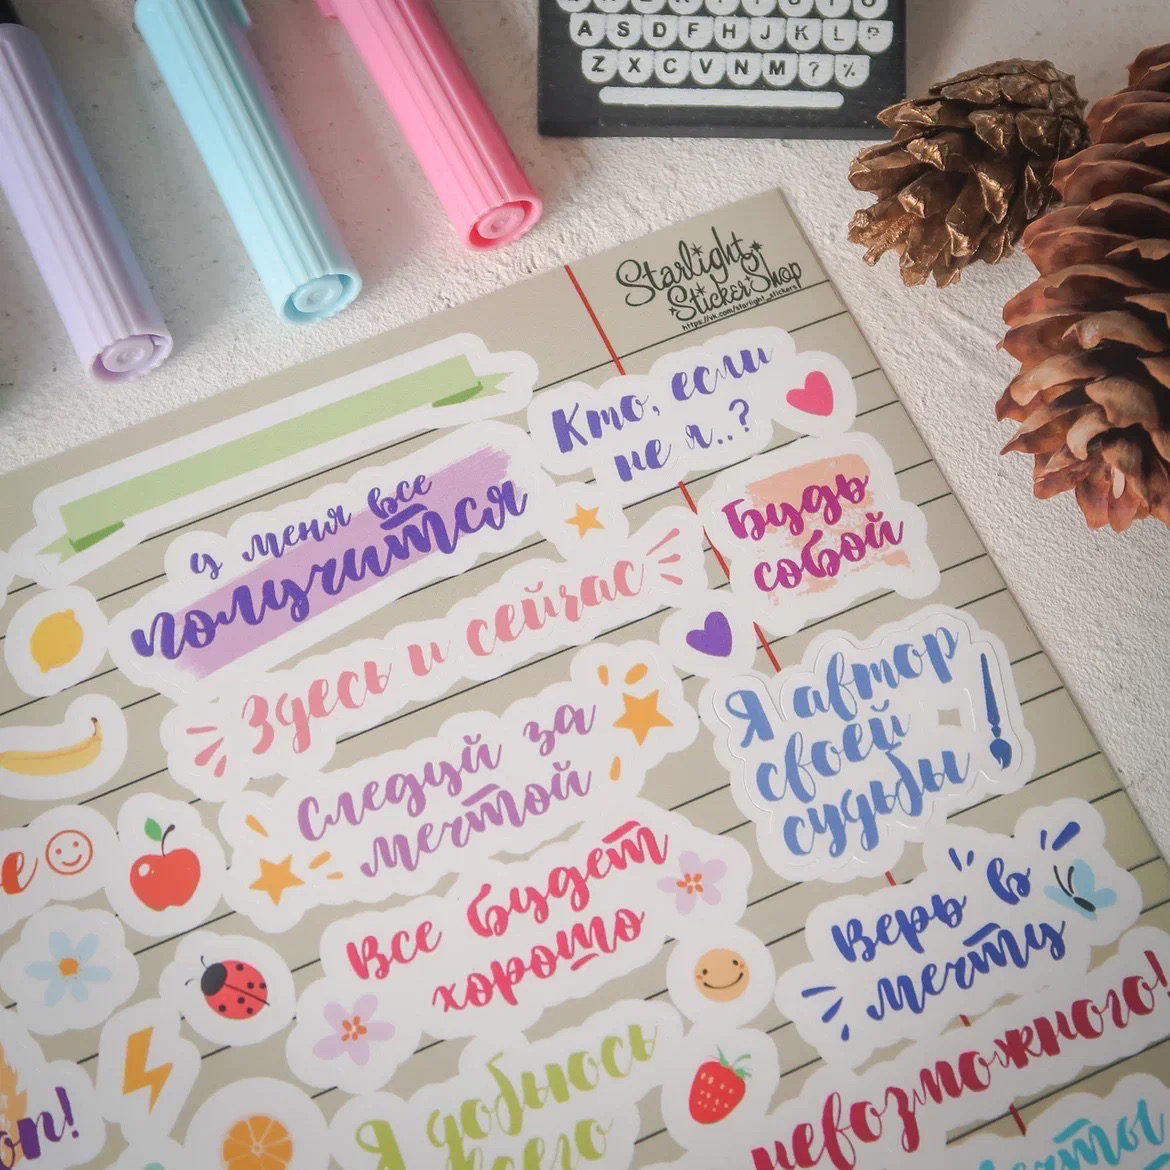 A S D F G H J K L P
Z X C V N M ? %
Starlight
StickerShop
https://vk.com/starlight_stickers
Кто, если
не я..?
у меня все
получится
Будь
собой
Здесь и сейчас
Я автор
своей
судьбы
Следуй за
мечтой
Все будет
хорошо
Верь в
мечту
Я добьюсь
всего
невозможного!